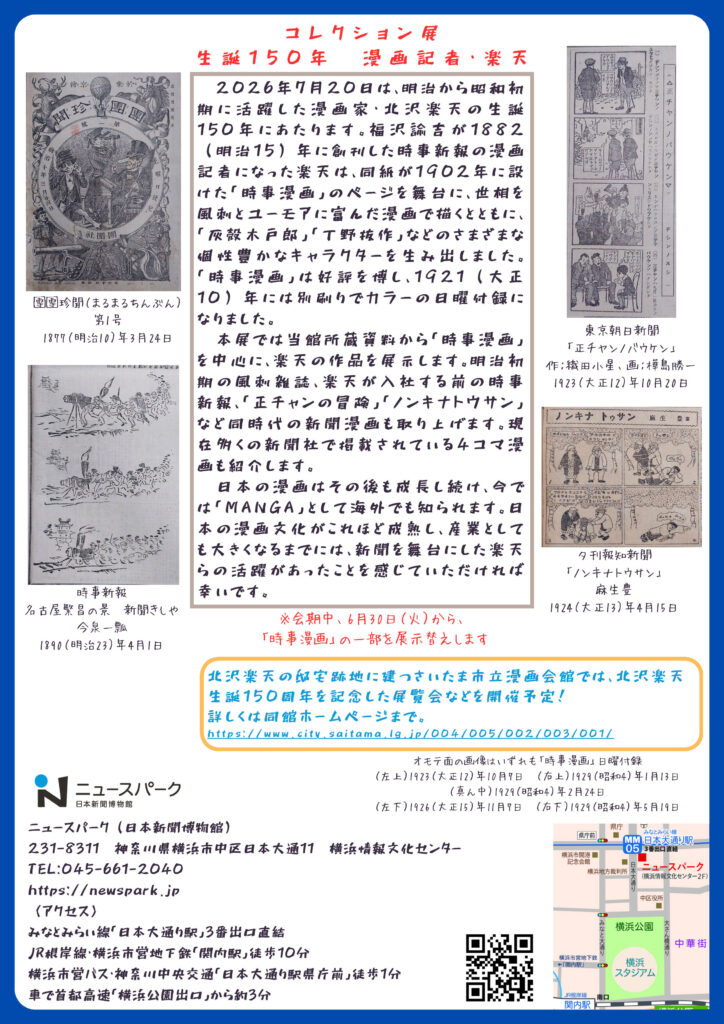 コレクション展
生誕150年　漫画記者・楽天
2026年7月20日は、明治から昭和初
期に活躍した漫画家・北沢楽天の生誕
150年にあたります。福沢諭吉が1882
（明治15）年に創刊した時事新報の漫画
記者になった楽天は、同紙が1902年に設
けた「時事漫画」のページを舞台に、世相を
風刺とユーモアに富んだ漫画で描くとともに、
「灰殻木戸郎」「丁野抜作」などのさまざまな
個性豊かなキャラクターを生み出しました。
「時事漫画」は好評を博し、1921（大正
10）年には別刷りでカラーの日曜付録に
なりました。
本展では当館所蔵資料から「時事漫画」
を中心に、楽天の作品を展示します。明治初
期の風刺雑誌、楽天が入社する前の時事
新報、「正チャンの冒険」「ノンキナトウサン」
など同時代の新聞漫画も取り上げます。現
在多くの新聞社で掲載されている4コマ漫
画も紹介します。
日本の漫画はその後も成長し続け、今で
は「MANGA」として海外でも知られます。日
本の漫画文化がこれほど成熟し、産業として
も大きくなるまでには、新聞を舞台にした楽天
らの活躍があったことを感じていただければ
幸いです。
※会期中、6月30日（火）から、
「時事漫画」の一部を展示替えします
團團珍聞（まるまるちんぶん）
第1号
1877（明治10）年3月24日
時事新報
名古屋繁昌の景　新聞きしや
今泉一瓢
1890（明治23）年4月1日
東京朝日新聞
「正チャンノバウケン」
作：織田小星、画：樺島勝一
1923（大正12）年10月20日
ノンキナトウサン 麻生豊
夕刊報知新聞
「ノンキナトウサン」
麻生豊
1924（大正13）年4月15日
北沢楽天の邸宅跡地に建つさいたま市立漫画会館では、北沢楽天
生誕150周年を記念した展覧会などを開催予定！
詳しくは同館ホームページまで。
https://www.city.saitama.lg.jp/004/005/002/003/001/
オモテ面の画像はいずれも「時事漫画」日曜付録
（左上）1923（大正12）年10月7日　（右上）1929（昭和4）年1月13日
（真ん中）1929（昭和4）年2月24日
（左下）1926（大正15）年11月7日　（右下）1929（昭和4）年5月19日
ニュースパーク
日本新聞博物館
ニュースパーク（日本新聞博物館）
231-8311　神奈川県横浜市中区日本大通11　横浜情報文化センター
TEL:045-661-2040
https://newspark.jp
〈アクセス〉
みなとみらい線「日本大通り駅」3番出口直結
JR根岸線・横浜市営地下鉄「関内駅」徒歩10分
横浜市営バス・神奈川中央交通「日本大通り駅県庁前」徒歩1分
車で首都高速「横浜公園出口」から約3分
県庁前
県庁
みなとみらい線
MM
05
日本大通り駅
3番出口直結
横浜市開港
記念会館
ニュースパーク
（横浜情報文化センター2F）
横浜地方裁判所
日本大通り
中区役所
みなと大通り
横浜公園
大さん橋通り
中華街
横浜市営地下鉄
「関内駅」
横浜
スタジアム
JR根岸線
関内駅
南口